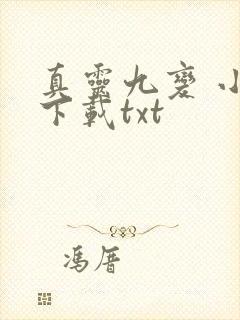 真靈九變 小
下載txt
馮厝